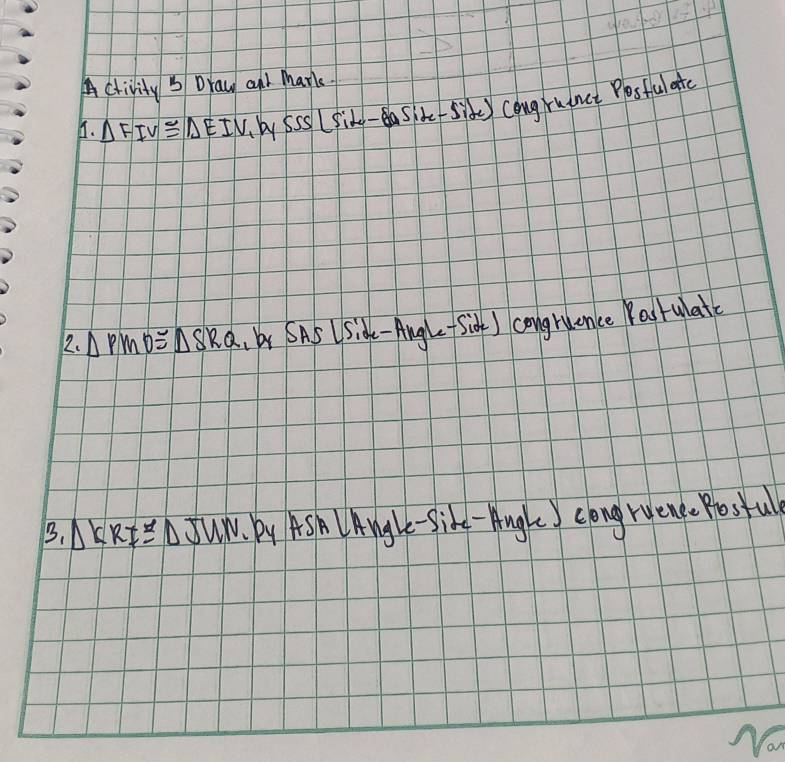 Activity 3 Draw and Mark
1. △FIV ≅ △EIV, by SSS (Side-Side-Side) Congruence Postulate
2. △PMO ≅ △SRQ, by SAS (Side-Angle-Side) congruence Postulate
3. △KRI ≅ △JUN. by ASA (Angle-Side-Angle) congruence Postul